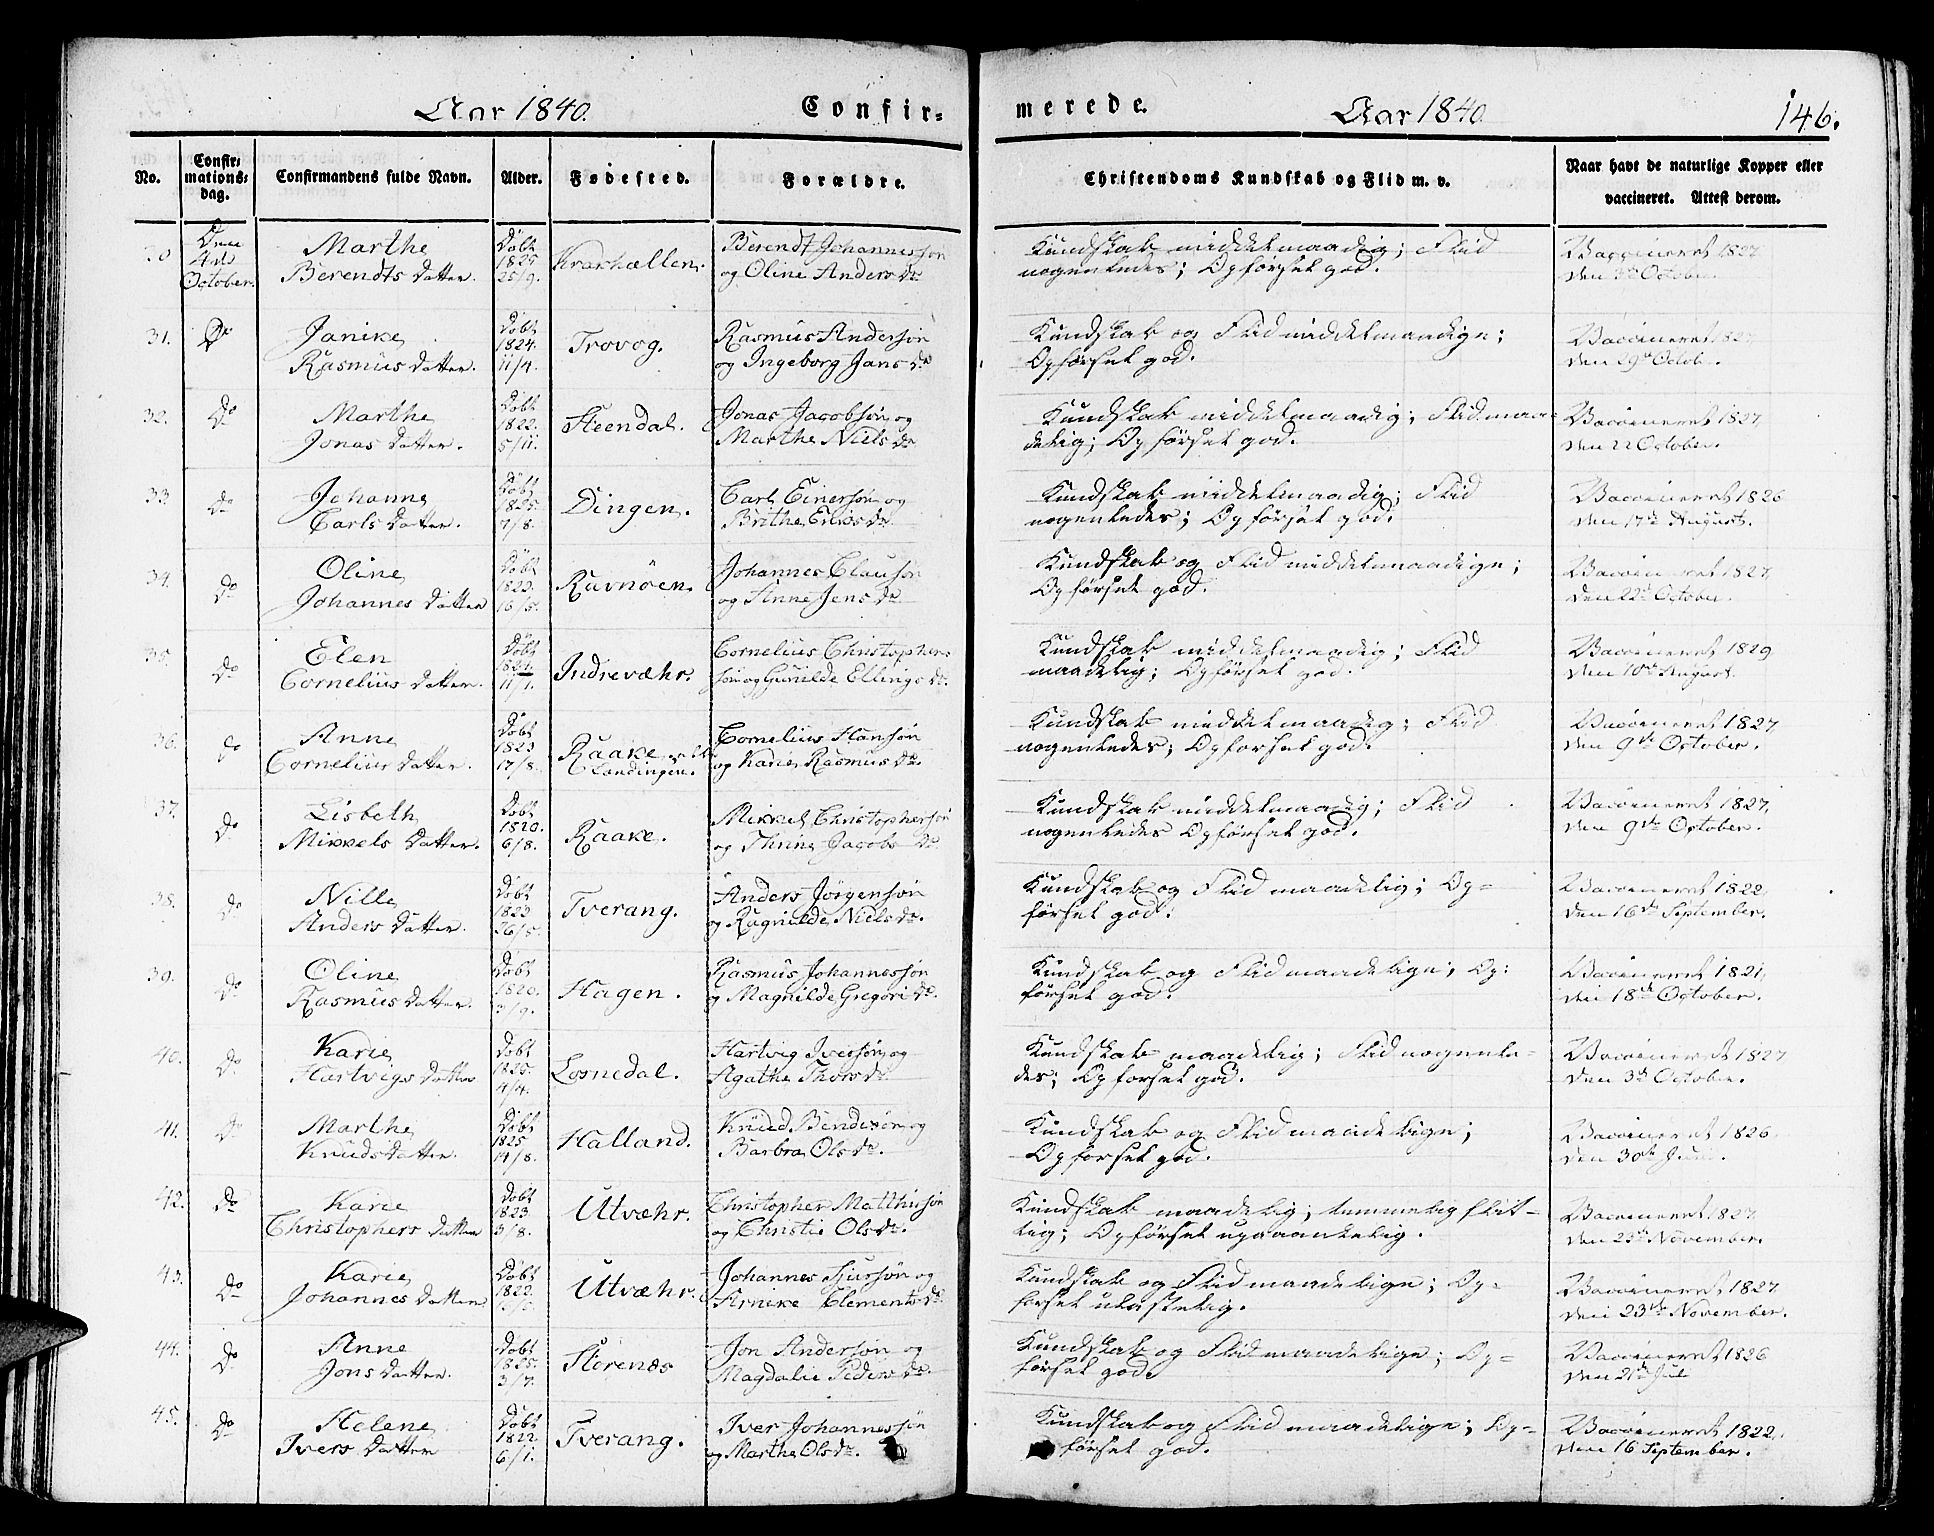 Aar 1840. Confir-
merede. Aar 1840 146.
No.
Confir-
mations-
dag.
Confirmandens fulde Navn.
Alder.
Fødested.
Forældre.
Christendoms Kundskab og Flid m. v.
Naar havt de naturlige Kopper eller
vaccineret. Attest derom.
30
Den
4de
October.
Marthe
Berendts Datter.
Døbt
1825
25/9.
Berendt Johannessøn
og Oline Anders Dr
Kundskab middelmaadig; Flid
nogenledes; Opførsel god.
Vaccineret 1827
den 3die October.
31.
Do
Janike
Rasmus Datter.
Døbt
1824.
11/4.
Trovog.
Rasmus Andersøn
og Ingeborg Jans Dr
Kundskab og Flid middelmaadige;
Opførsel god.
Vaccineret 1827
den 29de Octob.
32.
Do
Marthe
Jonas Datter.
Døbt
1822.
5/11.
Steendal.
Jonas Jacobsøn og
Marthe Niels Dr
Kundskab middelmaadig; Flid maa-
delig; Opførsel god.
Vaccineret 1827,
den 22 October.
33.
Do
Johanne
Carls Datter.
Døbt
1825.
7/8.
Dingen.
Carl Einersøn og
Brithe Eriks Dr
Kundskab middelmaadig; Flid
nogenledes; Opførsel god.
Vaccineret 1826
den 17de August.
34.
Do
Oline
Johannes Datter
Døbt
1823.
16/5.
Ravnøen.
Johannes Clausøn
og Anne Jens Dr
Kundskab og Flid middelmaadige;
Opførsel god.
Vaccineret 1827,
den 22de October.
35.
Do
Elen
Cornelius Datter.
Døbt
1824.
11/1.
Indrevæhr.
Cornelius Christophers
søn og Gunilde Ellings Dr.
Kundskab middelmaadig; Flid
maadelig; Opførsel god.
Vaccineret 1829
den 10de August.
36.
Do
Anne
Cornelius Datter.
Døbt
1823
17/8.
Raake
Cornelius Hansøn
og Karie Rasmus Dr.
Kundskab middelmaadig; Flid
nogenledes; Opførsel god.
Vaccineret 1827
den 9de October.
37.
Do
Lisbeth
Mikkels Datter.
Døbt
1820.
6/8.
Raake.
Mikkel Christophersøn
og Thrine Jacobs Dr.
Kundskab middelmaadig; Flid
nogenledes Opførsel god.
Vaccineret 1827,
den 9de October.
38.
Do
Nille
Anders Datter.
Døbt
1823
26/5.
Tverang.
Anders Jørgensøn
og Ragnilde Niels Dr.
Kundskab og Flid maadelig; Op-
førsel god.
Vaccineret 1822,
den 16de September.
39.
Do
Oline
Rasmus Datter.
Døbt
1820.
3/9.
Hagen.
Rasmus Johannessøn
og Magnilde Gregori Dr.
Kundskab og Flid maadelige; Op:
førsel god.
Vaccineret 1821,
den 18de October.
40.
Do
Karie
Hartvigs Datter
Døbt
1825.
4/4.
Losnedal.
Hartvig Iversøn og
Agathe Thors Dr.
Kundskab maadelig; Flid nogenle-
des; Opførsel god.
Vaccineret 1827
den 3de October.
41.
Do
Marthe
Knuds Datter.
Døbt
1825
14/8.
Halland.
Knud Bendixøn og
Barbra Ols Dr.
Kundskab og Flid maadelige;
Opførsel god.
Vaccineret 1826.
den 30te
42.
Do
Karie
Christophers Datter
Døbt
1823.
3/8.
Utvæhr.
Christopher Matthiesøn
og Christie Ols Dr.
Kundskab maadelig; temmelig flit-
tig; Opførsel upaaankelig.
Vaccineret 1827,
den 23de November.
43.
Do
Karie
Johannes Datter
Døbt
1822.
Utvæhr.
Johannes Sjursøn og
Arnike Clements Dr.
Kundskab og Flid maadelige; Op-
førsel ulastelig.
Vaccineret 1827
den 23de November.
44.
Do
Anne
Jons Datter.
Døbt
1825.
3/7.
Storenæs
Jon Andersøn og
Magdalie Peders Dr.
Kundskab og Flid maadelige; Op-
førsel god.
Vaccineret 1826
den 21de Jul
45.
Do
Helene
Ivers Datter
Døbt
1822
6/1.
Tverang.
Iver Johannessøn
og Marthe Ols Dr.
Kundskab og Flid maadelige; Op-
førsel god.
Vaccineret 1822,
den 16 September.